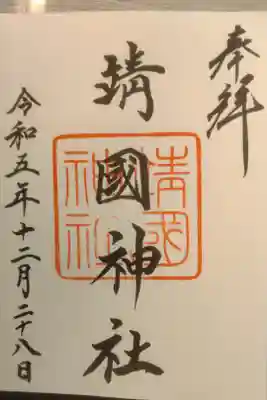 奉拜
靖國神社
令和五年十二月二十八日
靖國
神社